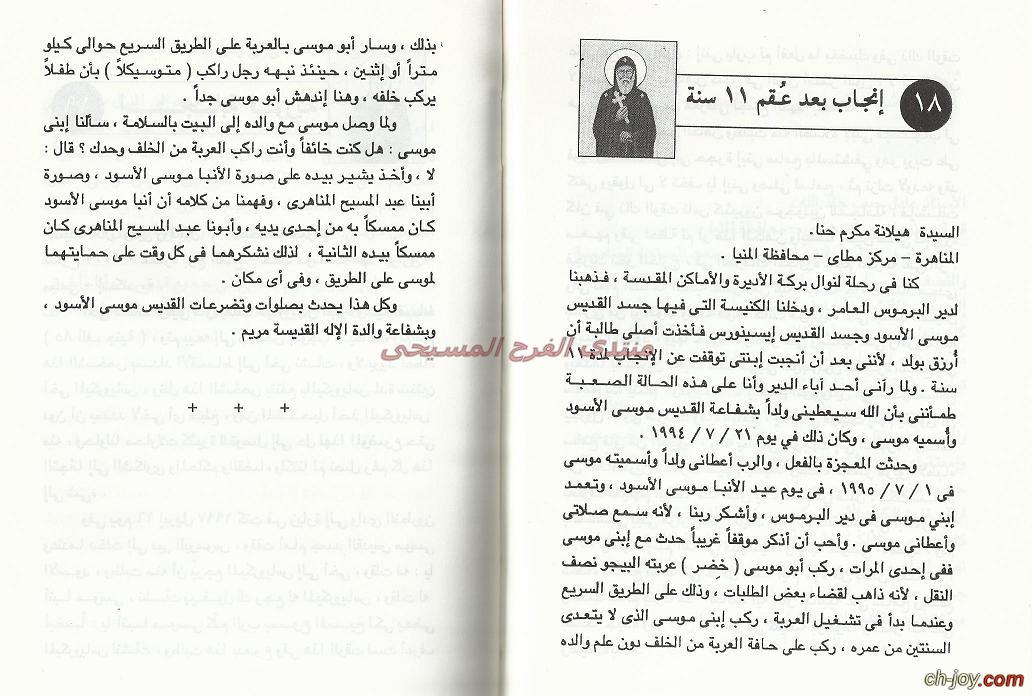 ١٨
إنجاب بعد عُقم ١١ سنة
السيدة هيلانة مكرم حنا.
المناهرة – مركز مطاى – محافظة المنيا .
كنا فى رحلة لنوال بركة الأديرة والأماكن المقدسة ، فذهبنا
لدير البرموس العامر ، ودخلنا الكنيسة التى فيها جسد القديس
موسى الأسود وجسد القديس إيسيذورس فأخذت أصلى طالبة أن
أُرزق بولد ، لأننى بعد أن أنجبت إبنتى توقفت عن الإنجاب لمدة ١١
سنة . ولما رآنى أحد آباء الدير وأنا على هذه الحالة الصعبة
طمأننى بأن الله سيعطينى ولداً بشفاعة القديس موسى الأسود
وأُسميه موسى ، وكان ذلك في يوم ٢١ / ٧ / ١٩٩٤ .
وحدثت المعجزة بالفعل ، والرب أعطانى ولداً وأسميته موسى
فى ١ / ٧ / ١٩٩٥ ، فى يوم عيد الأنبا موسى الأسود ، وتعمد
إبني موسى فى دير البرموس ، وأشكر ربنا ، لأنه سمع صلاتى
وأعطانى موسى . وأحب أن أذكر موقفاً غريباً حدث مع إبنى موسى
ففى إحدى المرات ، ركب أبو موسى ( خضر ) عربته البيجو نصف
النقل ، لأنه ذاهب لقضاء بعض الطلبات ، وذلك على الطريق السريع
وعندما بدأ فى تشغيل العربة ، ركب إبنى موسى الذى لا يتعدى
السنتين من عمره ، ركب على حافة العربة من الخلف دون علم والده
بذلك ، وسار أبو موسى بالعربة على الطريق السريع حوالى كيلو
متراً أو إثنين ، حينئذ نبهه رجل راكب ( متوسيكلاً ) بأن طفلاً
يركب خلفه ، وهنا إندهش أبو موسى جداً .
ولما وصل موسى مع والده إلى البيت بالسلامة ، سألنا إبنى
موسى : هل كنت خائفاً وأنت راكب العربة من الخلف وحدك ؟ قال :
لا ، وأخذ يشير بيده على صورة الأنبا موسى الأسود ، وصورة
أبينا عبد المسيح المناهرى ، وفهمنا من كلامه أن أنبا موسى الأسود
كان ممسكاً به من إحدى يديه ، وأبونا عبد المسيح المناهرى كان
ممسكاً بيده الثانية ، لذلك نشكرهما فى كل وقت على حمايتهما
لموسى على الطريق ، وفى أى مكان .
وكل هذا يحدث بصلوات وتضرعات القديس موسى الأسود ،
وبشفاعة والدة الإله القديسة مريم .
+ + +
منتدى الفرح المسيحى
ch-joy.com